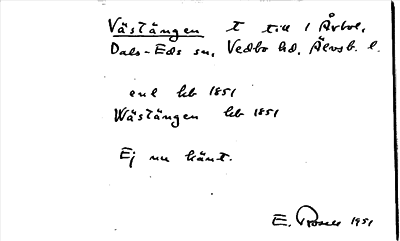 Västängen t till 1 Årbol,
Dals-Eds sn, Vedbo hd, Älvsb. l.
enl hb 1851
Wästängen hb 1851
Ej nu känt.
E. 1951